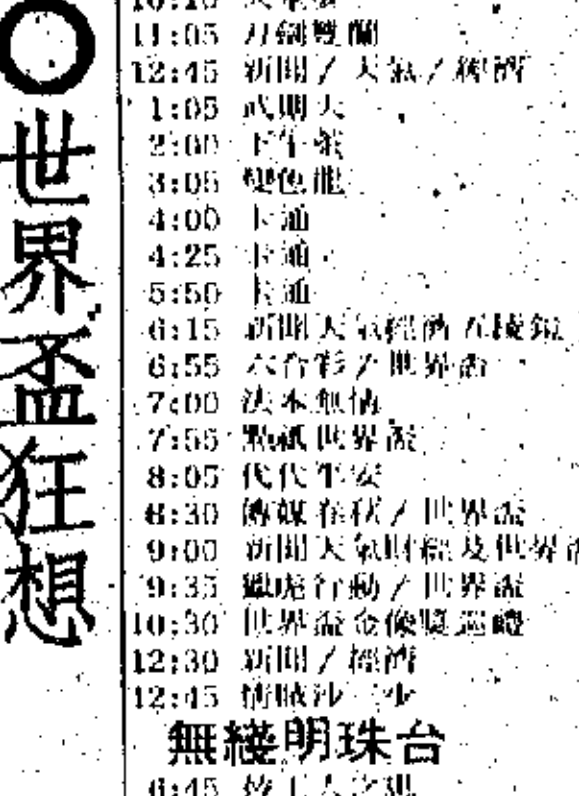 ○世界盃狂想
11:05 刀劍雙蘭
12:45 新聞／天氣／經濟
1:05 武則天
2:00 下午茶
3:05 變色龍
4:00 卡通
4:25 卡通
5:50 卡通
6:15 新聞天氣經濟
6:55 六合彩／世界盃
7:00 法本無情
7:55 點祇世界盃
8:05 代代平安
8:30 傳媒春秋／世界盃
9:00 新聞天氣財經及世界盃
9:35 獵虎行動／世界盃
10:30 世界盃金像獎巡禮
12:30 新聞／經濟
12:45
無綫明珠台
6:45